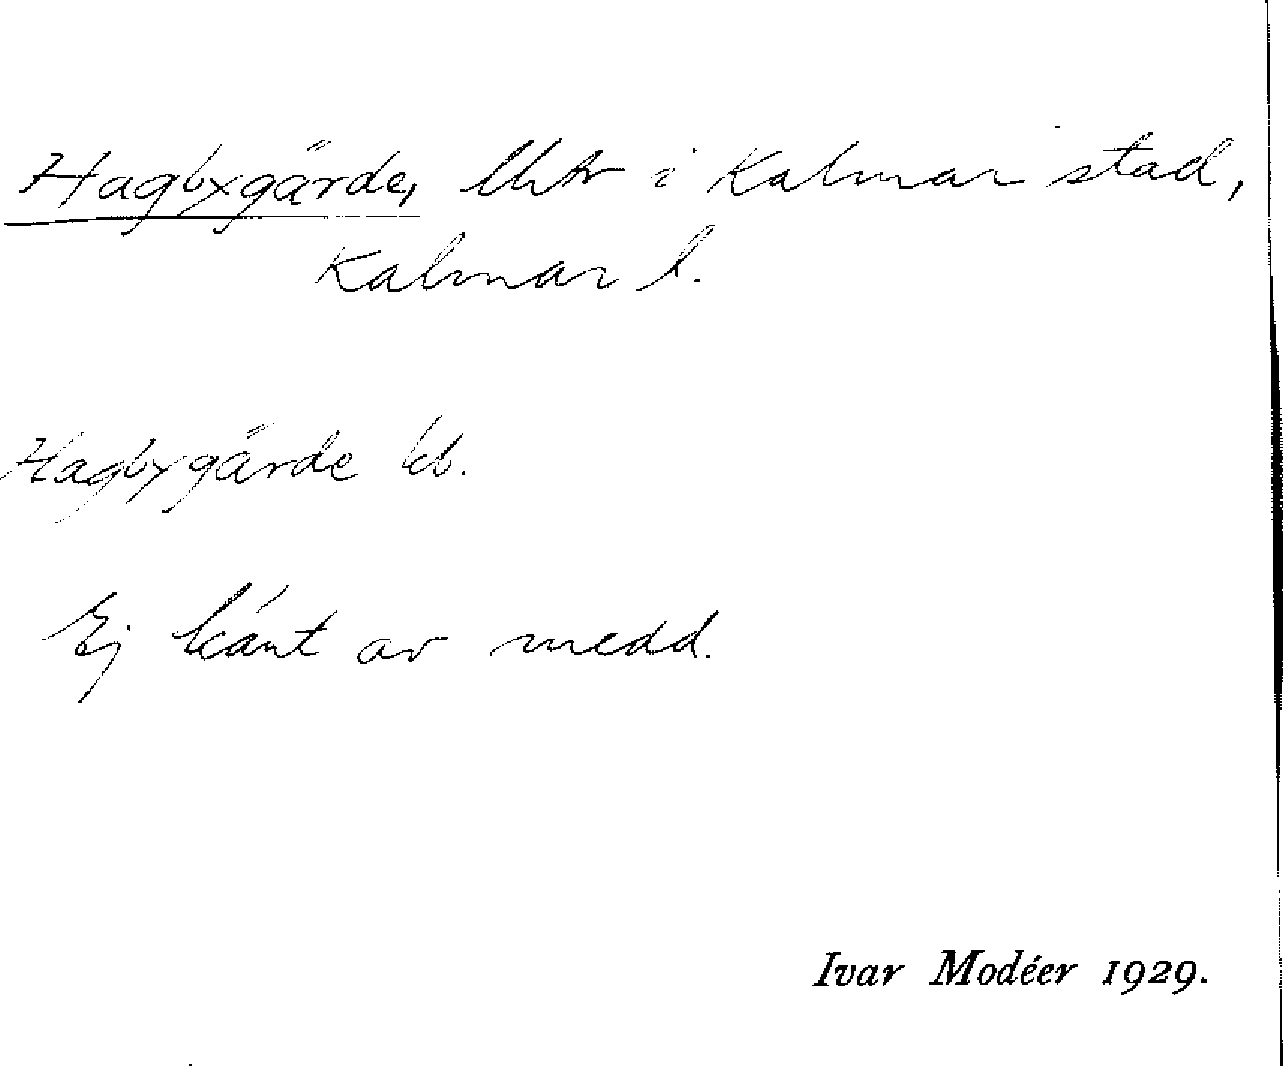 Hagbygärde, lht i Kalmar stad,
Kalmar l.
Hagbygärde kb.
Ej känt av medd.
Ivar Modéer 1929.